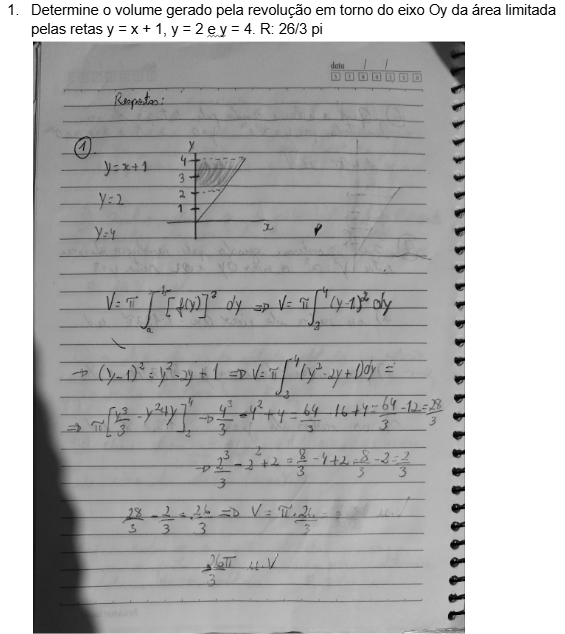 1. Determine o volume gerado pela revolução em torno do eixo Oy da área limitada
pelas retas y = x + 1, y = 2 e y = 4. R: 26/3 pi
date / /
Respostas:
1
y = x + 1
y = 2
y = 4
y
4
3
2
1
x
V = π ∫ₐᵇ [f(y)]² dy ⇒ V = π ∫₂⁴ (y-1)² dy
→ (y-1)² = y² - 2y + 1 ⇒ V = π ∫₂⁴ (y² - 2y + 1) dy =
⇒ π [y³/3 - y² + y]₂⁴ → 4³/3 - 4² + 4 = 64/3 - 16 + 4 = 64/3 - 12 = 28/3
→ 2³/3 - 2² + 2 = 8/3 - 4 + 2 = 8/3 - 2 = 2/3
28/3 - 2/3 = 26/3 ⇒ V = π · 26/3
26π/3 u.V